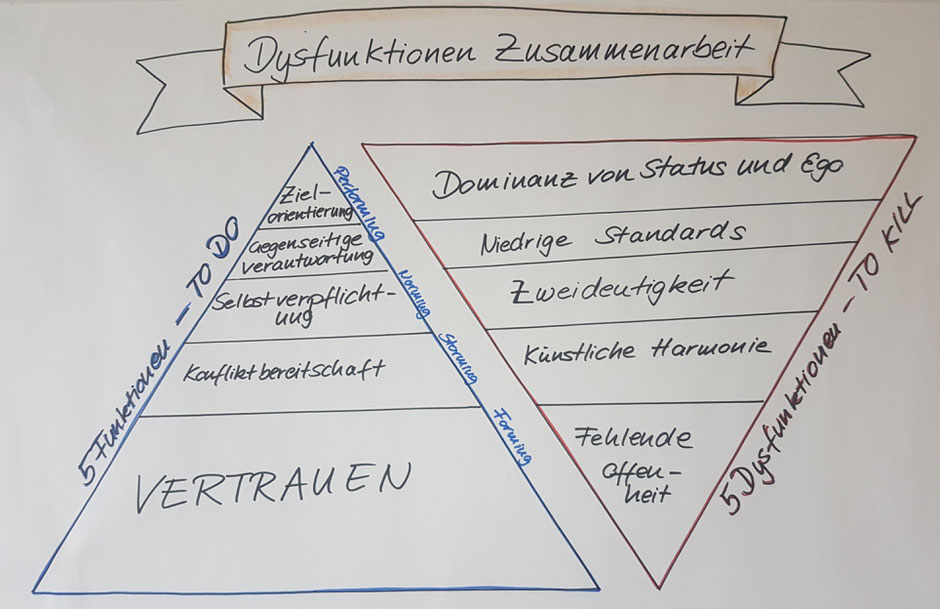 Dysfunktionen Zusammenarbeit
5 Funktionen – TO DO
Ziel-
orientierung
Gegenseitige
Verantwortung
Selbstverpflicht-
ung
Konfliktbereitschaft
VERTRAUEN
Performing
Norming
Storming
Forming
Dominanz von Status und Ego
Niedrige Standards
Zweideutigkeit
Künstliche Harmonie
Fehlende
Offen-
heit
5 Dysfunktionen – TO KILL